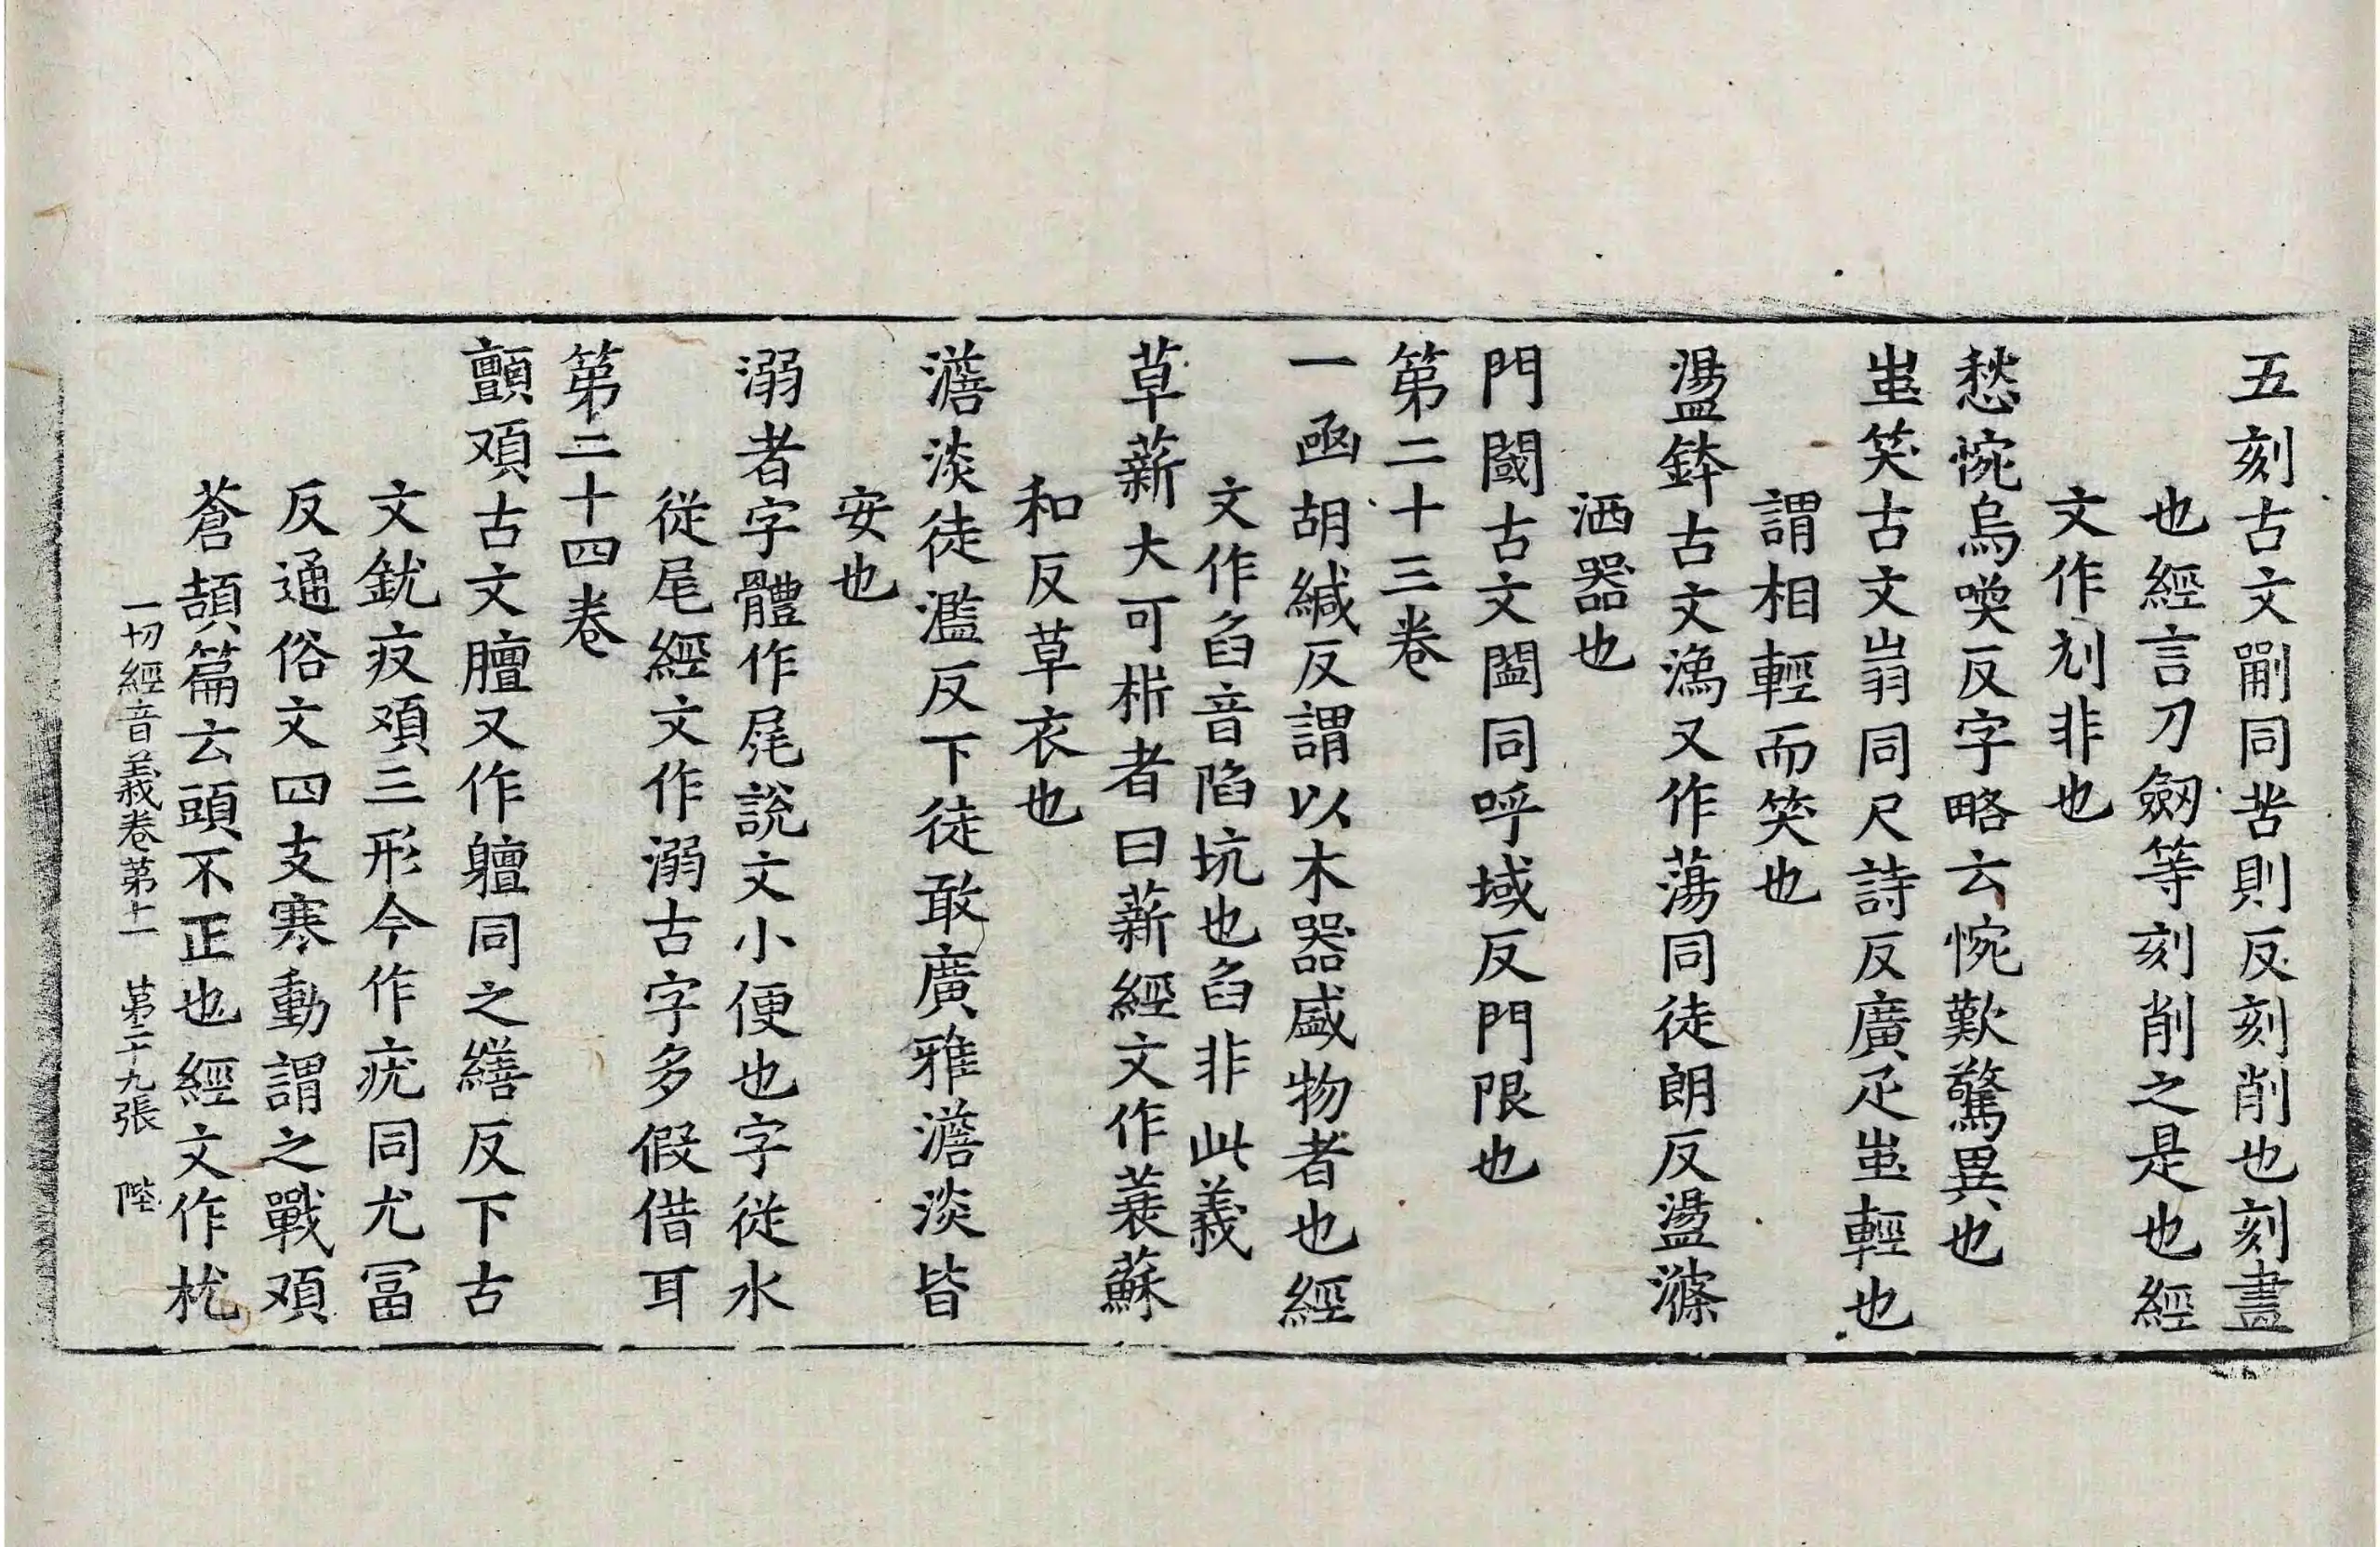 五刻古文𠜇同苦則反刻削也刻畫
也經言刀劒等刻削之是也經
文作刾非也
愁惋烏喚反字略云惋歎驚異也
蚩笑古文𡴕同尺詩反廣疋蚩輕也
謂相輕而笑也
盪鉢古文潒又作蕩同徒朗反盪滌
洒器也
門閾古文閾同呼域反門限也
第二十三卷
一函胡緘反謂以木器盛物者也經
文作臽音陷坑也臽非此義
草薪大可析者曰薪經文作蓑蘇
和反草衣也
澹淡徒濫反下徒敢廣雅澹淡皆
安也
溺者字體作㞙說文小便也字從水
從尾經文作溺古字多假借耳
第二十四卷
顫頄古文膻又作䡀同之繕反下古
文䤛疢頄三形今作疣同尤冨
反通俗文四支寒動謂之戰頄
蒼頡篇云頭不正也經文作枕
一切經音義卷第十一 第二十九張 陛